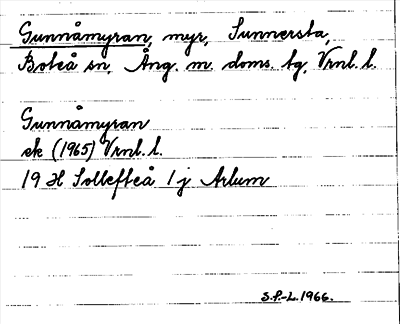 Gunnåmyran, myr, Sunnersta,
Boteå sn, Ång. m. doms. tg. Vrnl. l.
Gunnåmyran
ek (1965) Vrnl. l.
19 H Sollefteå 1 j Arlum
S.P.-L. 1966.